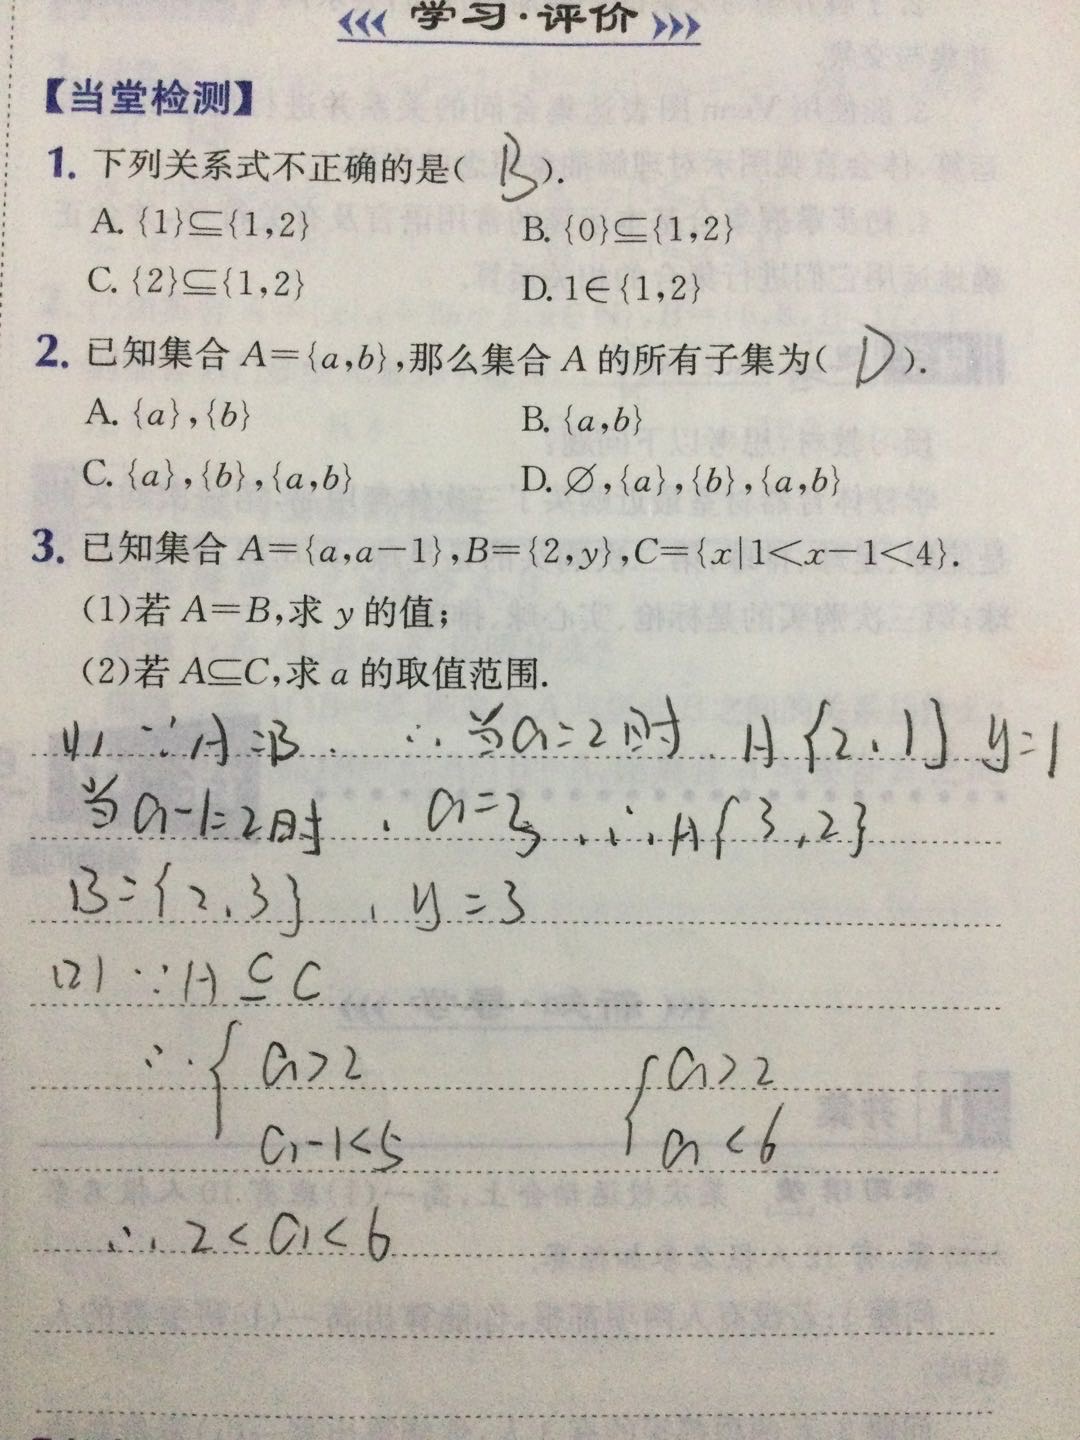 《《《 学习·评价 》》》
【当堂检测】
1. 下列关系式不正确的是( B ).
A. {1}⊆{1,2} B. {0}⊆{1,2}
C. {2}⊆{1,2} D. 1∈{1,2}
2. 已知集合 A={a,b},那么集合 A 的所有子集为( D ).
A. {a},{b} B. {a,b}
C. {a},{b},{a,b} D. ∅,{a},{b},{a,b}
3. 已知集合 A={a,a-1},B={2,y},C={x|1<x-1<4}.
(1)若 A=B,求 y 的值;
(2)若 A⊆C,求 a 的取值范围.
(1) ∵A=B. ∴当a=2时. A{2,1} y=1
当a-1=2时, a=3, ∴A{3,2}
B={2,3}, y=3
(2) ∵A⊆C
∴{a>2 {a>2
a-1<5 a<6
∴2<a<6